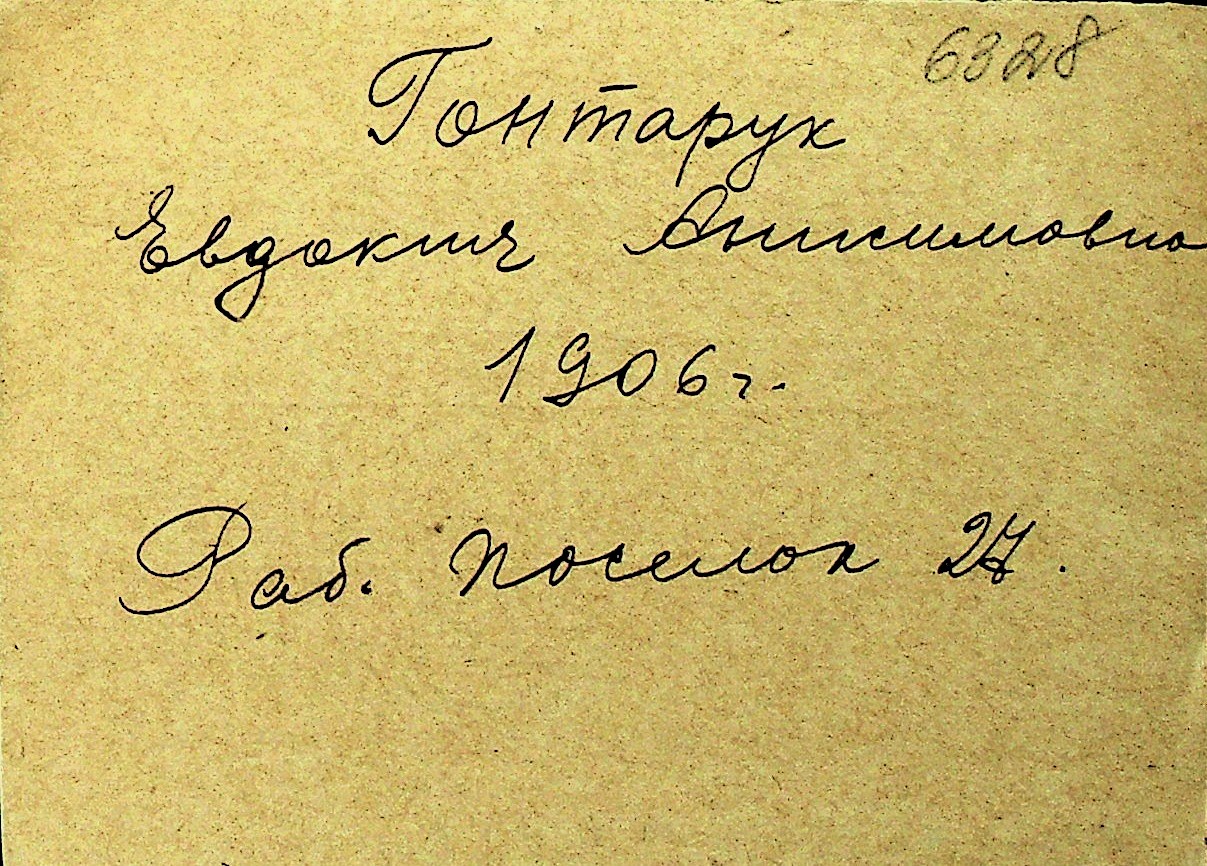 6328
Гонтарук
Евдокия Анисимовна
1906 г.
Раб. поселок 27.